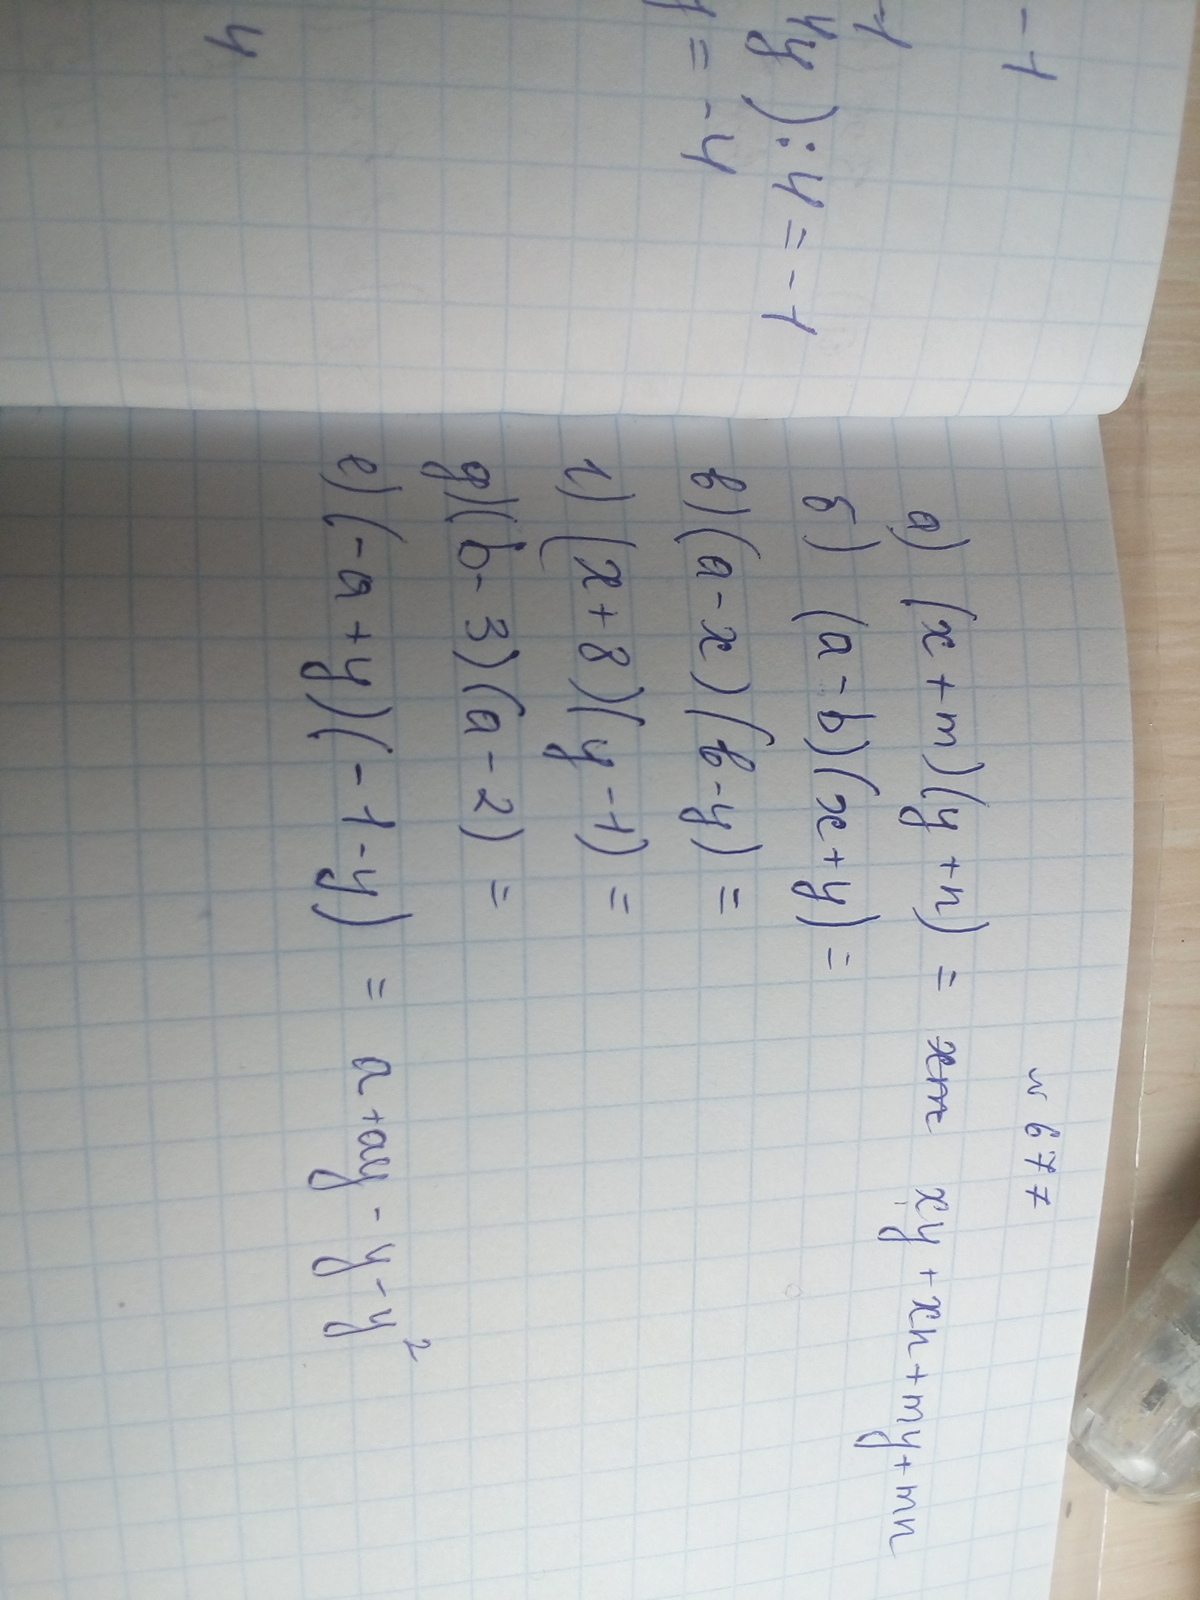 -1
-1
4y ) : 4 = -1
y = -4
4
№ 677
а) (x + m)(y + n) = xm xy + xn + my + mn
б) (a - b)(x + y) =
в) (a - x)(b - y) =
г) (x + 8)(y - 1) =
д) (b - 3)(a - 2) =
е) (-a + y)(-1 - y) = a + ay - y - y²